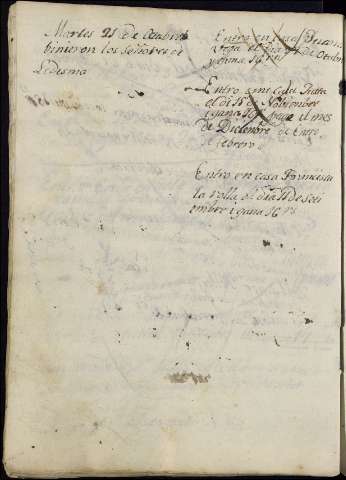 Martes 21 de Octubre
binieron los Señores de
Ledesma
Entro en casa
el dia de Octubre
y gana 16 rs
Entro en casa
el di 15 de Nobiembre
i gana 16 el mes
de Diciembre de Enero
febrero
Entro en casa Francisca
la Polla el dia 11 de seti
embre i gana 16 rs